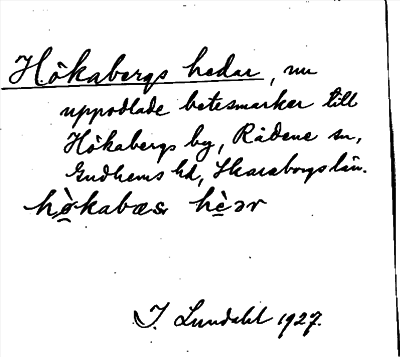 Hökabergs hedar, nu
uppodlade betesmarker till
Hökabergs by, Rådene sn,
Gudhems hd, Skaraborgs län.
hö̀kabæs hèər
I. Lundahl 1927.